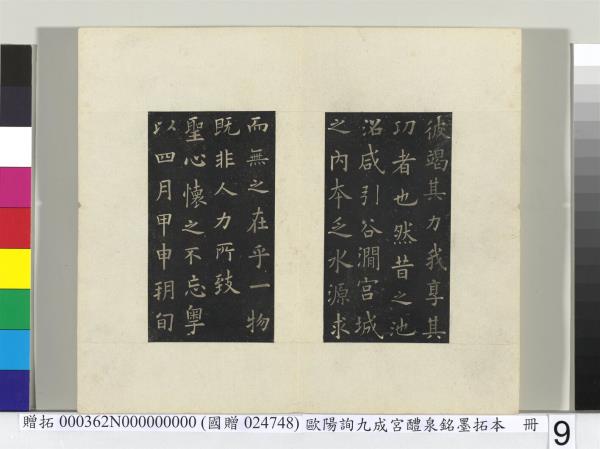 彼竭其力我享其
功者也然昔之池
沼咸引谷澗宮城
之內本乏水源求
而無之在乎一物
既非人力所致
聖心懷之不忘粵
以四月甲申朔旬
贈拓 000362N000000000 (國贈 024748) 歐陽詢九成宮醴泉銘墨拓本 冊
9